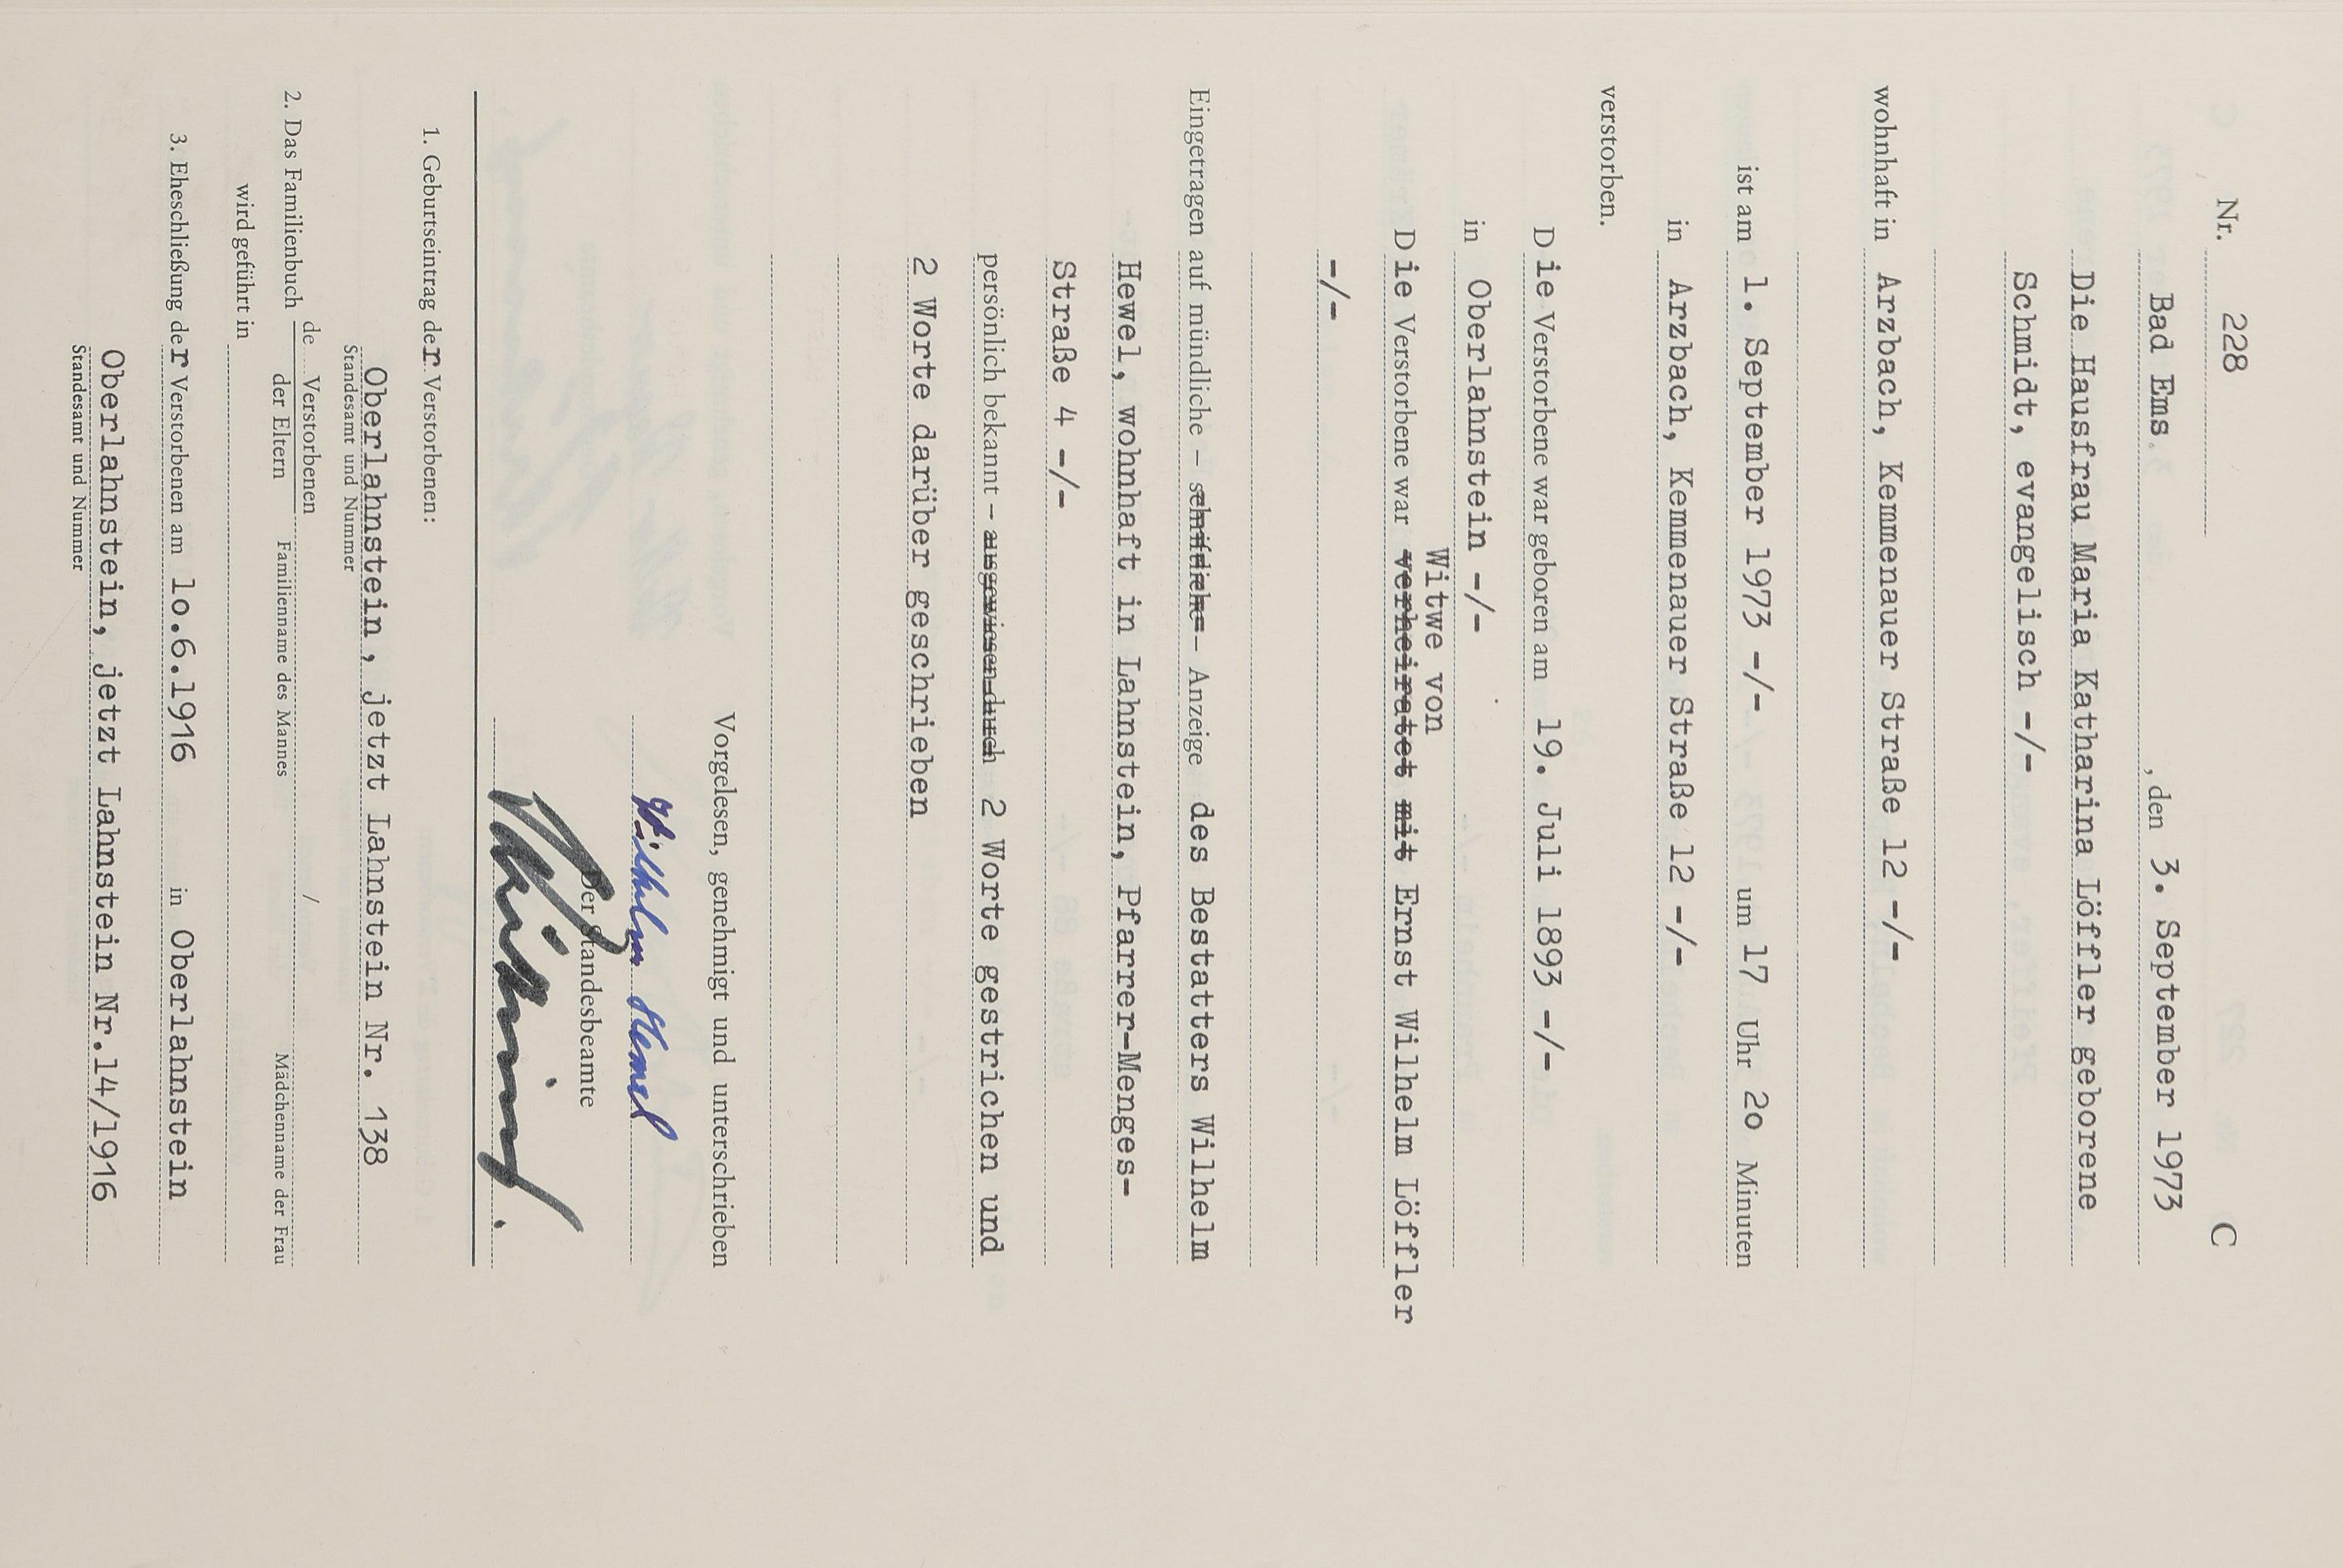 Nr. 228 C
Bad Ems, den 3. September 1973
Die Hausfrau Maria Katharina Löffler geborene
Schmidt, evangelisch -/-
wohnhaft in Arzbach, Kemmenauer Straße 12 -/-
ist am 1. September 1973 -/- um 17 Uhr 2o Minuten
in Arzbach, Kemmenauer Straße 12 -/-
verstorben.
Die Verstorbene war geboren am 19. Juli 1893 -/-
in Oberlahnstein -/-
Witwe von
Die Verstorbene war verheiratet mit Ernst Wilhelm Löffler
-/-
Eingetragen auf mündliche - schriftliche - Anzeige des Bestatters Wilhelm
Hewel, wohnhaft in Lahnstein, Pfarrer-Menges-
Straße 4 -/-
persönlich bekannt - ausgewiesen durch 2 Worte gestrichen und
2 Worte darüber geschrieben
Vorgelesen, genehmigt und unterschrieben
Wilhelm Hewel
Der Standesbeamte
1. Geburtseintrag der Verstorbenen:
Oberlahnstein, jetzt Lahnstein Nr. 138
Standesamt und Nummer
2. Das Familienbuch de Verstorbenen /
der Eltern Familienname des Mannes Mädchenname der Frau
wird geführt in
3. Eheschließung der Verstorbenen am 1o.6.1916 in Oberlahnstein
Oberlahnstein, jetzt Lahnstein Nr.14/1916
Standesamt und Nummer